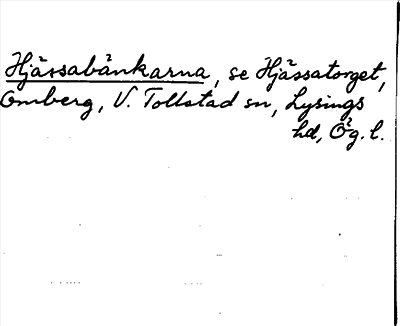 Hjässabänkarna, se Hjässatorget,
Omberg, V. Tollstad sn, Lysings
hd, Ög. l.